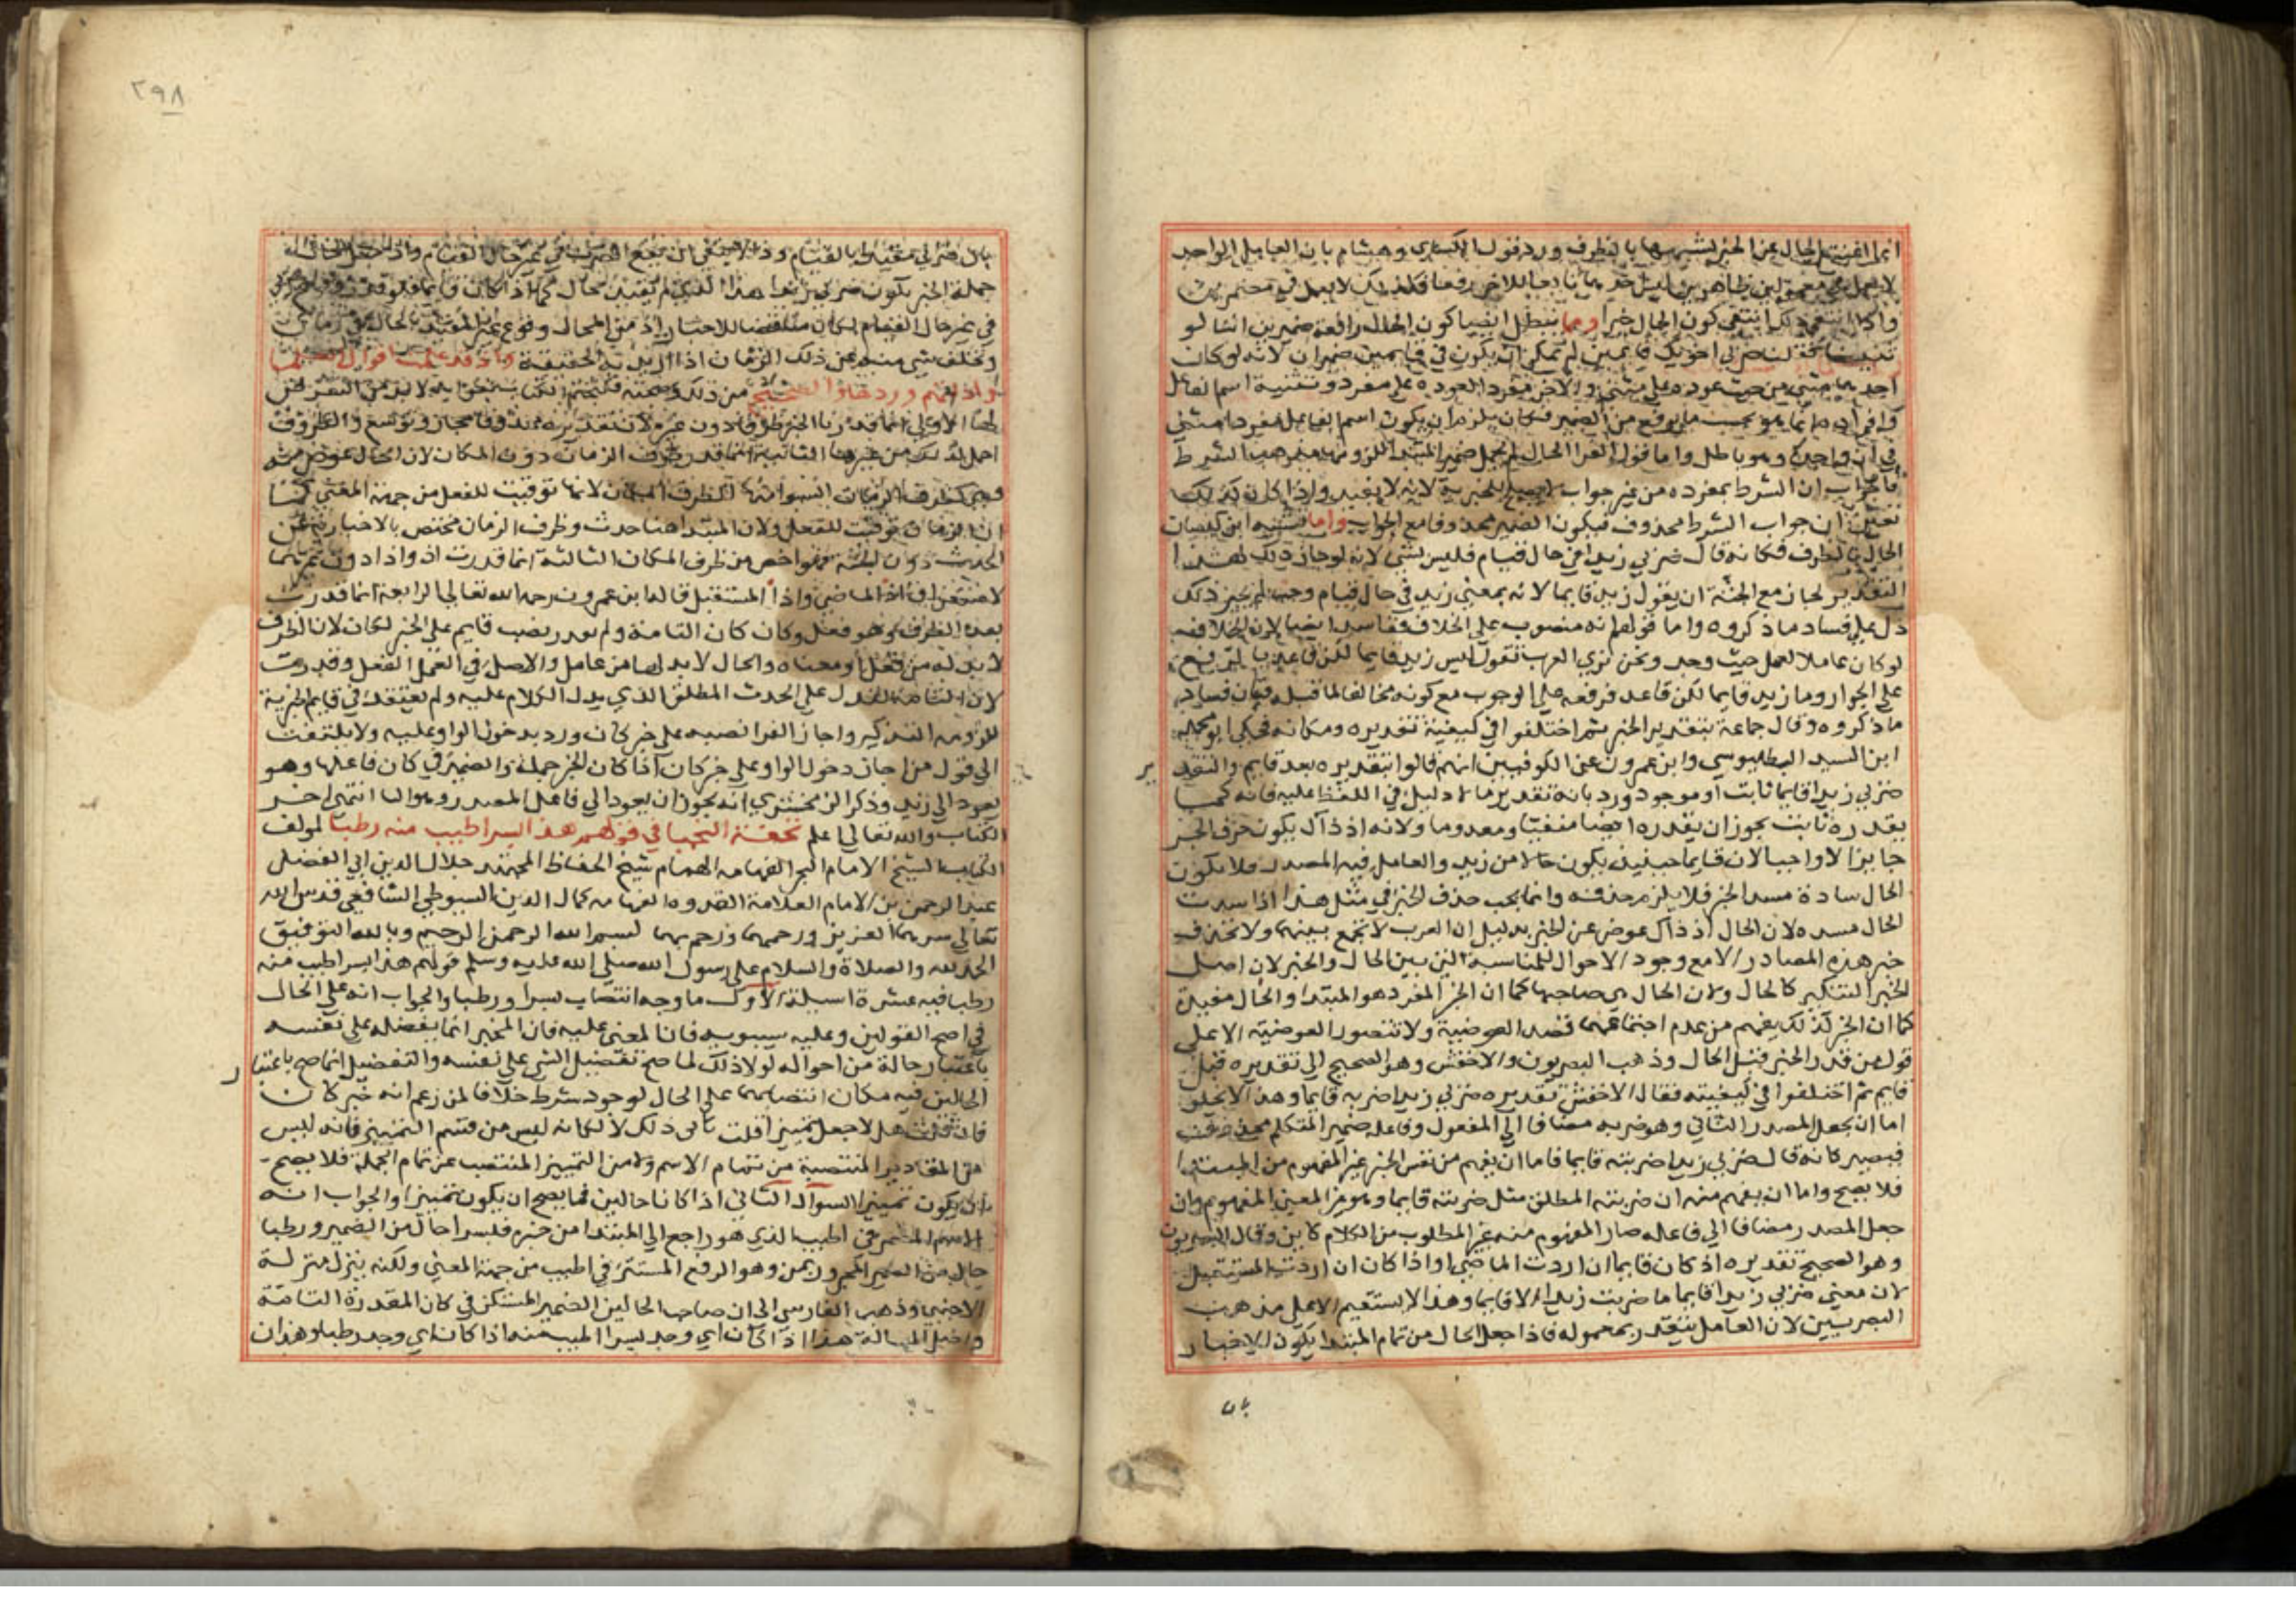 انما اغنت الحال عن الخبر لشبهها بالظرف ورد قول الكسائي وهشام بان العامل الواحد
لا يعمل في معمولين ظاهرين ليس احدهما تابعا للاخر رفعا فكذلك لا يعمل في مضمرين
واذا انتفى ذلك انتفى كون الحال خبرا ومما يبطل ايضا كون الحال رافعة ضميرين اننا لو
اخويك قايمين لم يمكن ان يكون في قايمين ضميران لانه لو كان
احدهما مثنى من حيث عوده على مثنى والاخر مفرد لعوده على مفرد وتثنية اسم الفاعل
وافراده انما هو بحسب ما يرفع من الضمير فكان يلزم ان يكون اسم الفاعل مفردا مثنى
في ان واحد وهو باطل واما قول الفرا الحال لم تحمل ضمير المبتدا للزومها مذهب الشرط
فالجواب ان الشرط بمفرده من غير جواب لا يصلح للخبرية لانه لا يفيد واذا كان كذلك
تعين ان جواب الشرط محذوف فيكون الضمير محذوفا مع الجواب واما تشبيه ابن كيسان
الحال بالظرف فكانه قال ضربي زيدا في حال قيام فليس بشي لانه لو جاز ذلك لهذا
التقدير لجاز مع الجثة ان يقول زيد قايما لانه بمعنى زيد في حال قيام وحيث لم يجز ذلك
دل على فساد ما ذكروه واما قولهم انه منصوب على الخلاف ففاسد ايضا لان الخلاف
لو كان عاملا لعمل حيث وجد ونحن نرى العرب تقول ليس زيد قايما لكن قاعد بالرفع
على الجوار وما زيد قايما لكن قاعد فرفعه على الوجوب مع كونه مخالفا لما قبله فبان فساد
ما ذكروه وقال جماعة بتقدير الخبر ثم اختلفوا في كيفية تقديره ومكانه فحكى ابو محمد
ابن السيد البطليوسي وابن عمرون عن الكوفيين انهم قالوا بتقديره بعد قايم والتقدير
ضربي زيدا قايما ثابت او موجود ورد بانه تقدير ما لا دليل في اللفظ عليه فانه كما
يقدره ثابت يجوز ان يقدره ايضا منفيا ومعدوما ولانه اذ ذاك يكون حذف الخبر
جايزا لا واجبا لان قايما حينئذ يكون حالا من زيد والعامل فيه المصدر فلا يكون
الحال سادة مسد الخبر فلا يلزم حذفه وانما يجب حذف الخبر في مثل هذا اذا سدت
الحال مسده لان الحال اذ ذاك عوض عن الخبر بدليل ان العرب لا تجمع بينهما ولا تحذف
خبر هذه المصادر الا مع وجود الاحوال للمناسبة التي بين الحال والخبر لان اصل
الخبر التنكير كالحال ولان الحال هي صاحبها كما ان الخبر المفرد هو المبتدا والحال مقيدة
كما ان الخبر كذلك يفهم من عدم اجتماعهما قصد العوضية ولا تتصور العوضية الا على
قول من قدر الخبر قبل الحال وذهب البصريون والاخفش وهو الصحيح الى تقديره قبل
قايم ثم اختلفوا في كيفيته فقال الاخفش تقديره ضربي زيدا ضربه قايما وهذا لا يخلو
اما ان يجعل المصدر الثاني وهو ضربه مضافا الى المفعول وفاعله ضمير المتكلم محذوف
فيصير كانه قال ضربي زيدا ضربته قايما فاما ان يفهم من نفس الخبر غير المفهوم من المبتدا
فلا يصح واما ان يفهم منه ان ضربته المطلق مثل ضربته قايما وهو غير المعنى المفهوم وان
جعل المصدر مضافا الى فاعله صار المفهوم منه غير المطلوب من الكلام كاين وقال البصريون
وهو الصحيح تقديره اذ كان قايما ان اردت الماضي او اذا كان ان اردت المستقبل
لان معنى ضربي زيدا قايما ما ضربت زيدا الا قايما وهذا لا يستقيم الا على مذهب
البصريين لان العامل يتقدر بمعموله فاذا جعل الحال من تمام المبتدا يكون الاخبار
بان
٢٩٨
بان ضربي مقيدا بالقيام وذلك لا ينفي ان يقع الضرب في غير حال القيام واذا جعل الحال من
جملة الخبر يكون ضربي زيدا هذا الذي لم يقيد بحال كما اذا كان قايما فلو قدر
في غير حال القيام لكان مناقضا للاخبار اذ من المحال وقوع غير المقيد بالحال في زمان
وتخلف شي منه عن ذلك الزمان اذا اريد به الحقيقة واذ قد علمت اقوال العلما
وادلتهم ورد ما والصحيح من ذلك وصحته فلنختم الكتاب بما لا بد من التعرض
لها الاولى انما قدرنا الخبر ظرفا دون غيره لان تقدير محذوفا مجاز وتوسع والظروف
احمل لذلك من غيرها الثانية انما قدر ظرف الزمان دون المكان لان الحال عوض منه
وهي كظرف الزمان انسب منها كظرف المكان لانها توقيت للفعل من جهة المعنى كما
ان الزمان توقيت للفعل ولان المبتدا هنا حدث وظرف الزمان مختص بالاخبار به عن
الحدث دون الجثة فهو اخص من ظرف المكان الثالثة انما قدرت اذ واذا دون غيرهما
لاستغراق اذ الماضي واذا المستقبل قاله ابن عمرون رحمه الله تعالى الرابعة انما قدرت
بعد الظرف وهو فعل وكان كان التامة ولم يقدر نصب قايم على الخبر لكان لان الظرف
لا بد له من فعل او معناه والحال لا بد لها من عامل والاصل في العمل الفعل وقدرت
كان التامة لتدل على الحدث المطلق الذي يدل الكلام عليه ولم يعتقد في قايم الخبرية
للزومه التنكير واجاز الفرا نصبه على خبر كان ورد بدخول الواو عليه ولا يلتفت
الى قول من اجاز دخول الواو على خبر كان اذا كان الخبر جملة والضمير في كان فاعلها وهو
يعود الى زيد وذكر الزمخشري انه يجوز ان يعود الى فاعل المصدر وهو اليا انتهى اخر
الكتاب والله تعالى اعلم تحفة النجبا في قولهم هذا بسرا اطيب منه رطبا لمولف
الكتاب الشيخ الامام البحر الفهامه الهمام شيخ الحفاظ المجتهد جلال الدين ابي الفضل
عبد الرحمن بن الامام العلامة القدوه الفهامه كمال الدين السيوطي الشافعي قدس الله
تعالى سرهما العزيز ورحمهما ورحم بهما بسم الله الرحمن الرحيم وبالله التوفيق
الحمد لله والصلاة والسلام على رسول الله صلى الله عليه وسلم قولهم هذا بسرا اطيب منه
رطبا فيه عشرة اسيلة الاول ما وجه انتصاب بسرا ورطبا والجواب انه على الحال
في اصح القولين وعليه سيبويه فان المعنى عليه فان المخبر انما يفضله على نفسه
باعتبار حالة من احواله لولا ذلك لما صح تفضيل الشي على نفسه والتفضيل انما صح باعتبار
الحالين فيه مكان انتصابهما على الحال لوجود شرط خلافا لمن زعم انه خبر كان
فان قلت هلا جعل تمييزا قلت يابى ذلك لانه ليس من قسم التمييز فانه ليس
من المقادير المنتصبة من تمام الاسم ولا من التمييز المنتصب عن تمام الجملة فلا يصح
ان يكون تمييزا السوال الثاني اذا كانا حالين فما يصح ان يكون تمييزا والجواب انه
الاسم المضمر في اطيب الذي هو راجع الى المبتدا من خبره فبسرا حال من الضمير ورطبا
حال من الضمير المجرور بمن وهو الرفع المستتر في اطيب من جهة المعنى ولكنه ينزل منزلة
الاجنبي وذهب الفارسي الى ان صاحب الحالين الضمير المستكن في كان المقدرة التامة
واصل المسالة هذا اذا كان اي وجد بسرا اطيب منه اذا كان اي وجد رطبا وهذان